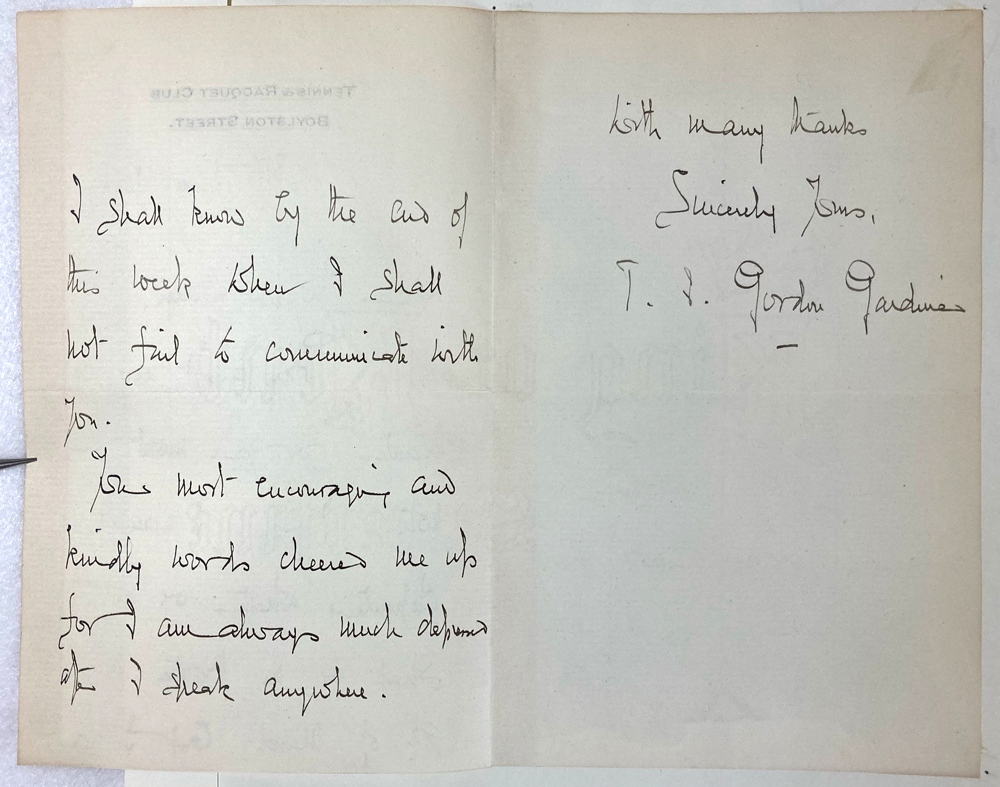 TENNIS & RACQUET CLUB
BOYLSTON STREET.
I shall know by the end of
this week when I shall
not fail to communicate with
you.
Your most encouraging and
kindly words cheered me up
for I am always much depressed
after I speak anywhere.
With many thanks
Sincerely Yours,
T. I. Gordon Gardiner